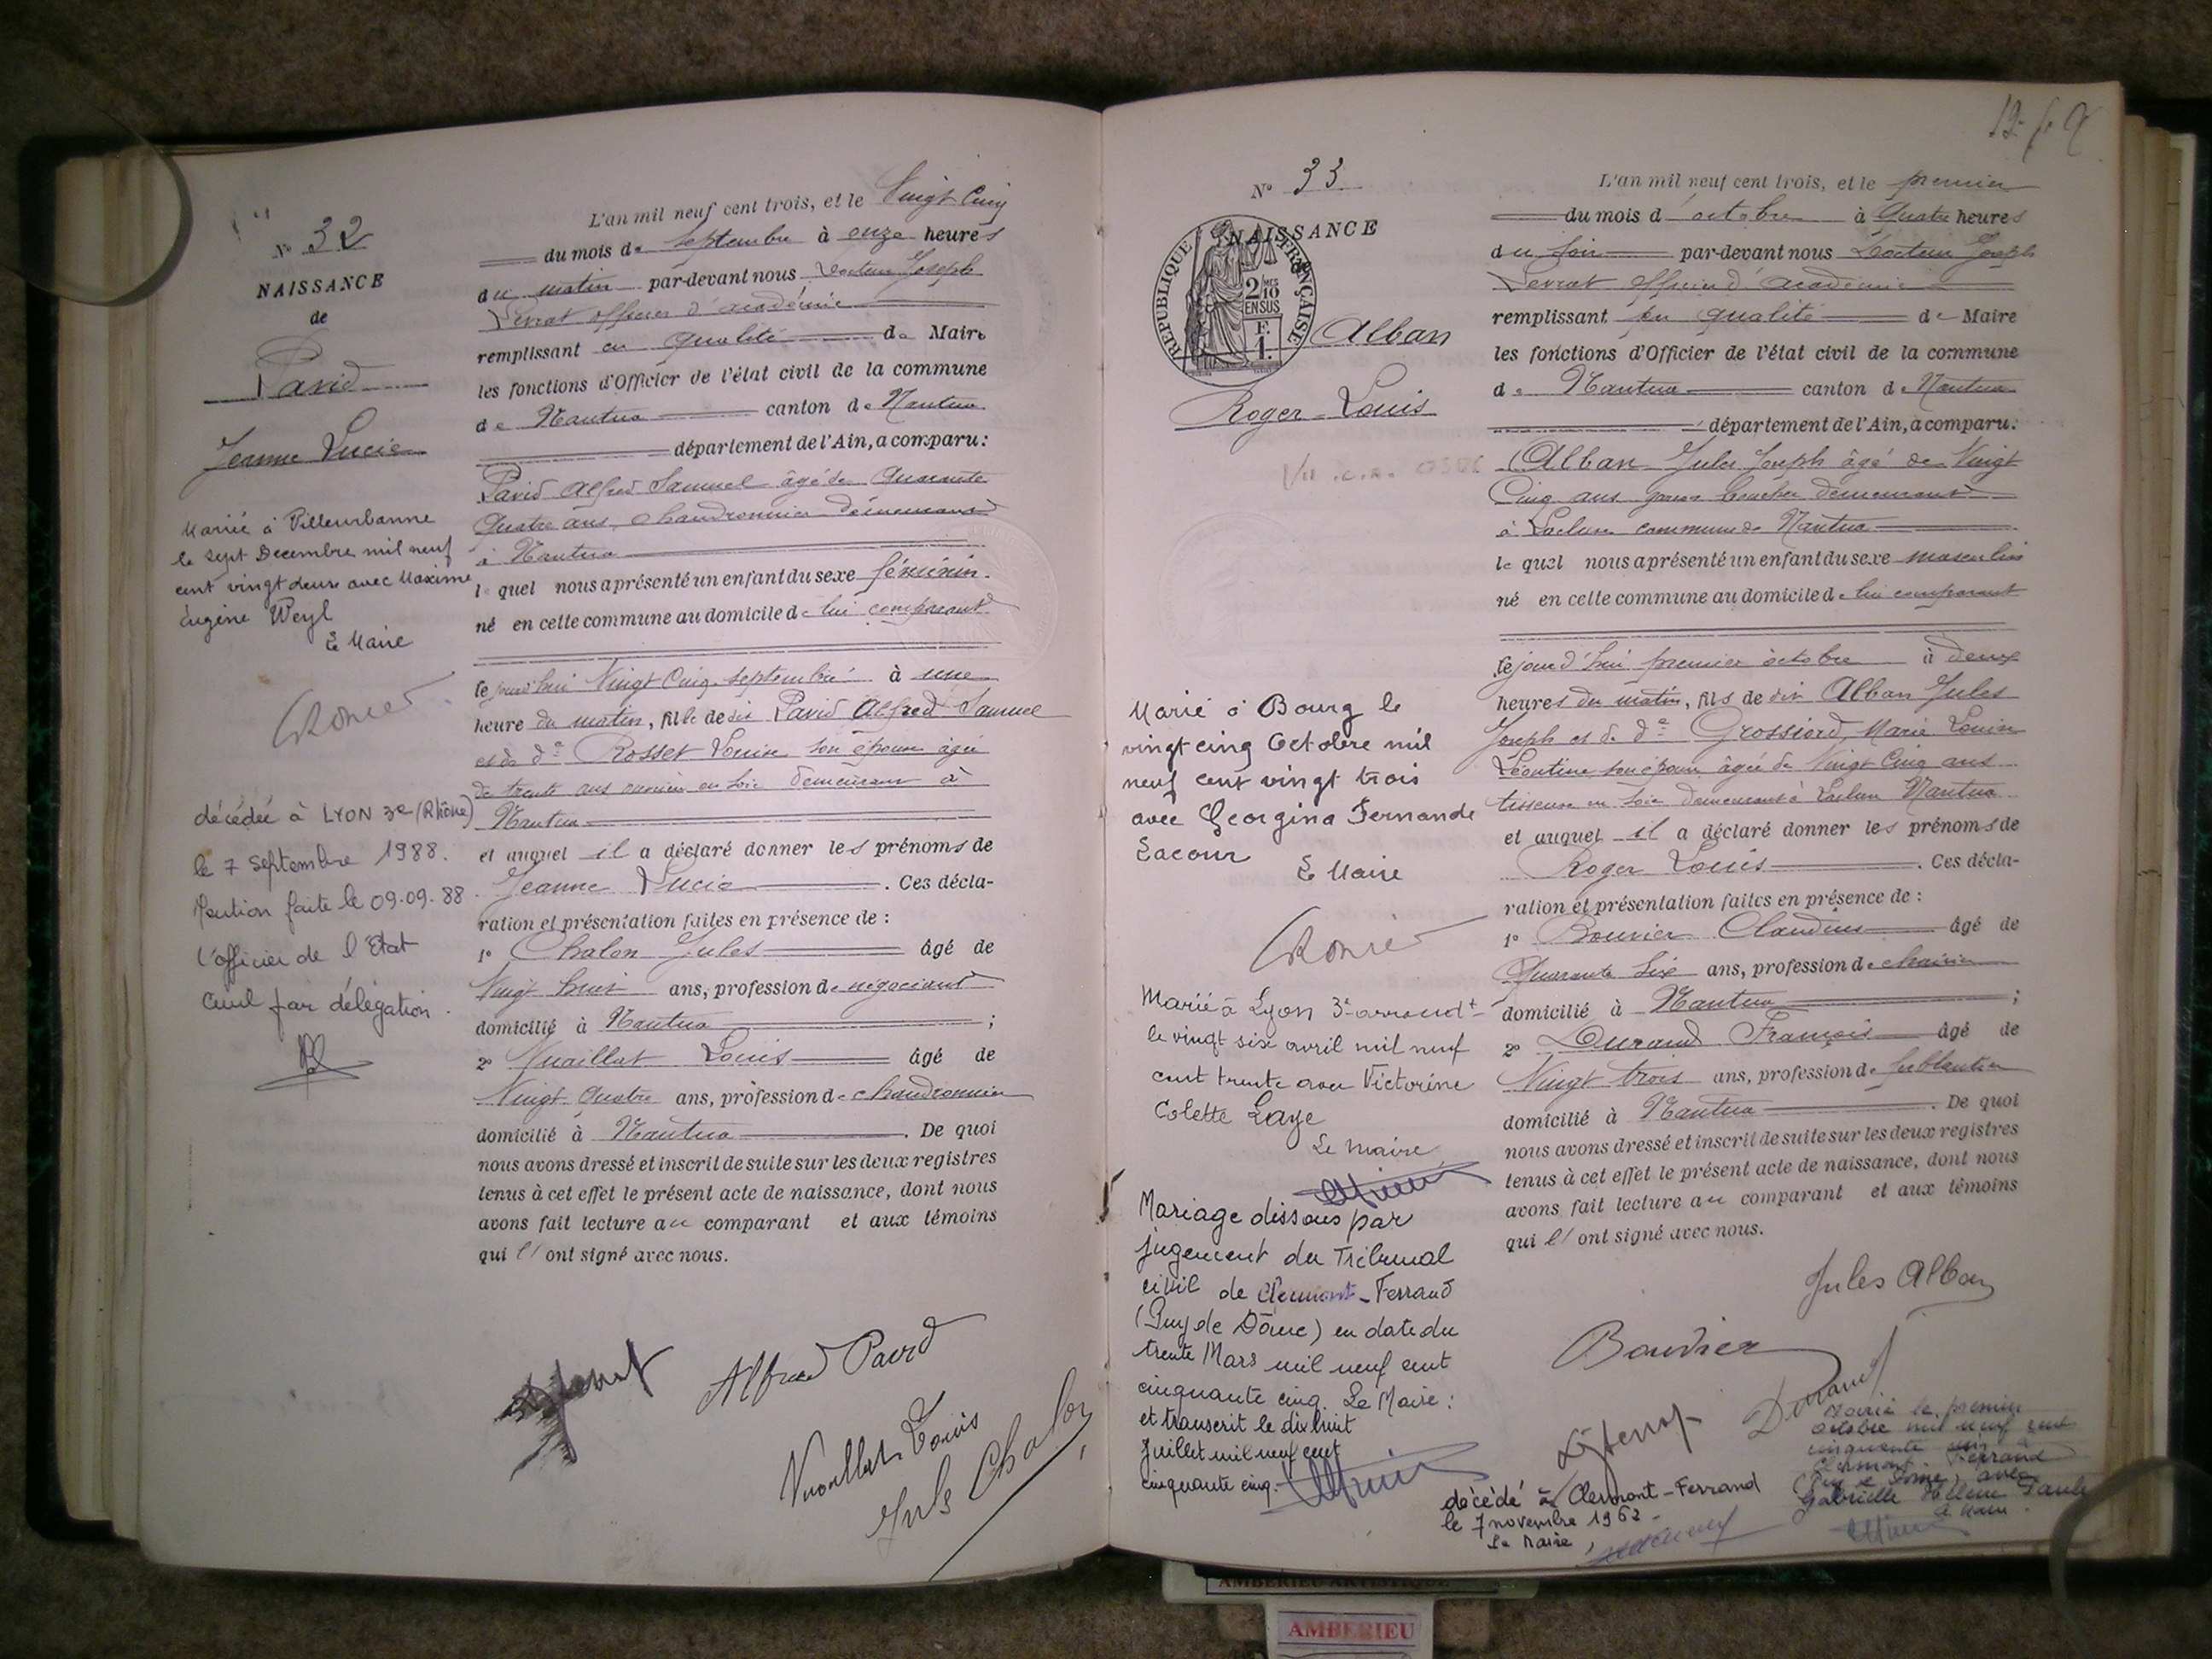 N° 32
NAISSANCE
de
David
Jeanne Lucie
Mariée à Villeurbanne
le sept Decembre mil neuf
cent vingt deux avec Maxime
Eugène Weyl
Le Maire
décédée à LYON 3e (Rhône)
le 7 septembre 1988.
Mention faite le 09.09.88.
l'officier de l'Etat
Civil par délégation.
L'an mil neuf cent trois, et le Vingt Cinq
du mois de septembre à onze heures
du matin par-devant nous Docteur Joseph
Levrat officier d'académie
remplissant en qualité de Maire
les fonctions d'Officier de l'état civil de la commune
de Nantua canton de Nantua
département de l'Ain, a comparu:
David Alfred Samuel âgé de Quarante
Quatre ans, chaudronnier demeurant
à Nantua
le quel nous a présenté un enfant du sexe féminin
né en cette commune au domicile de lui comparant
le jour d'hui Vingt Cinq septembre à une
heure du matin, fille de dit David Alfred Samuel
et de de Rosset Louise son épouse âgée
de trente ans ouvrière en soie demeurant à
Nantua
et auquel il a déclaré donner les prénoms de
Jeanne Lucie. Ces décla-
ration et présentation faites en présence de :
1° Chalon Jules âgé de
Vingt huit ans, profession de négociant
domicilié à Nantua ;
2° Vuaillat Louis âgé de
Vingt quatre ans, profession de chaudronnier
domicilié à Nantua. De quoi
nous avons dressé et inscrit de suite sur les deux registres
tenus à cet effet le présent acte de naissance, dont nous
avons fait lecture au comparant et aux témoins
qui l'ont signé avec nous.
Alfred David
Vuaillat Louis
Jules Chalon
N° 33
NAISSANCE
de
REPUBLIQUE FRANÇAISE
2/10MES
EN SUS
F.
1.
Alban
Roger Louis
Marié à Bourg le
vingt cinq Octobre mil
neuf cent vingt trois
avec Georgina Fernande
Lacour
Le Maire
Marié à Lyon 3e arrondt
le vingt six avril mil neuf
cent trente avec Victorine
Colette Laye
Le Maire
Mariage dissous par
jugement du Tribunal
civil de Clermont-Ferrand
(Puy de Dôme) en date du
trente Mars mil neuf cent
cinquante cinq. Le Maire :
et transcrit le dix huit
Juillet mil neuf cent
cinquante cinq.
L'an mil neuf cent trois, et le premier
du mois d'octobre à Quatre heures
du soir par-devant nous Docteur Joseph
Levrat officier d'académie
remplissant en qualité de Maire
les fonctions d'Officier de l'état civil de la commune
de Nantua canton de Nantua
département de l'Ain, a comparu:
Alban Jules Joseph âgé de Vingt
Cinq ans garçon boucher demeurant
à Lacluse commune de Nantua
le quel nous a présenté un enfant du sexe masculin
né en cette commune au domicile de lui comparant
le jour d'hui premier octobre à deux
heures du matin, fils de dit Alban Jules
Joseph et de de Grossiord, Marie Louise
Léontine son épouse âgée de Vingt Cinq ans
tisseuse en soie demeurant à Lacluse Nantua
et auquel il a déclaré donner les prénoms de
Roger Louis. Ces décla-
ration et présentation faites en présence de :
1° Bouvier Claudius âgé de
Quarante Six ans, profession de
domicilié à Nantua ;
2° Durand François âgé de
Vingt trois ans, profession de ferblantier
domicilié à Nantua. De quoi
nous avons dressé et inscrit de suite sur les deux registres
tenus à cet effet le présent acte de naissance, dont nous
avons fait lecture au comparant et aux témoins
qui l'ont signé avec nous.
Jules Alban
Bouvier
Durand
Marié le premier
octobre mil neuf cent
cinquante
Clermont-Ferrand
(Puy de Dôme) avec
Gabrielle Hélène Paule
Le Maire
décédé à Clermont-Ferrand
le 7 novembre 1962.
Le Maire,
AMBERIEU ARTISTIQUE
AMBERIEU